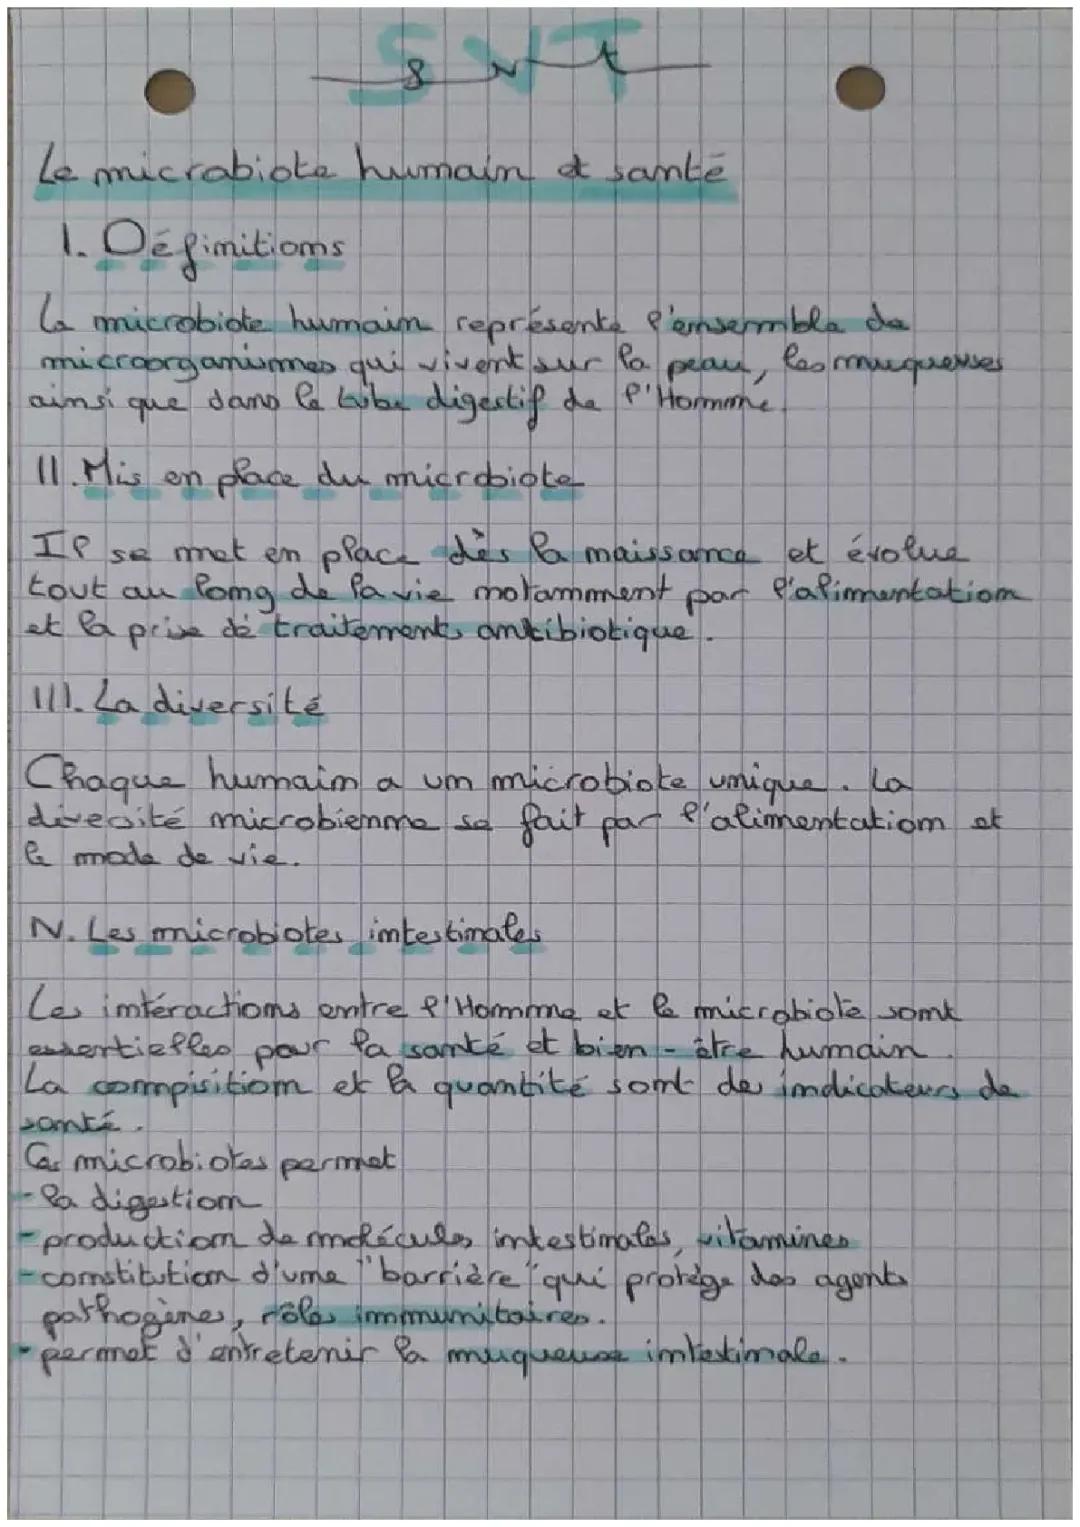 SVT
Le microbiote humain et santé
I. Définitions
Le microbiote humain représente l'ensemble de
microorganismes qui vivent sur la peau, les muqueuses
ainsi que dans le tube digestif de l'Homme.
II. Mis en place du microbiote
Il se met en place dès la naissance et évolue
tout au long de la vie notamment par l'alimentation
et la prise de traitements antibiotique.
III. La diversité
Chaque humain a un microbiote unique. La
diversité microbienne se fait par l'alimentation et
le mode de vie.
IV. Les microbiotes intestinales
Les intéractions entre l'Homme et le microbiote sont
essentielles pour la santé et bien-être humain.
La compisition et la quantité sont des indicateurs de
santé.
Ces microbiotes permet
- la digestion
- production de molécules intestinales, vitamines
- constitution d'une "barrière" qui protège des agents
pathogènes, rôles immunitaires.
- permet d'entretenir la muqueuse intestinale.